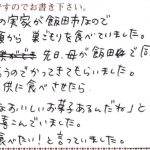 ですのでお書き下さい。
の実家が飯田市なので
頃から巣ごもりを食べていました。
先日、母が飯田で
うのでかってきてもらいました。
供に食べさせたら
なおいしいお菓あるんだね」と
喜んでいました。
食べたい!と言っていました。